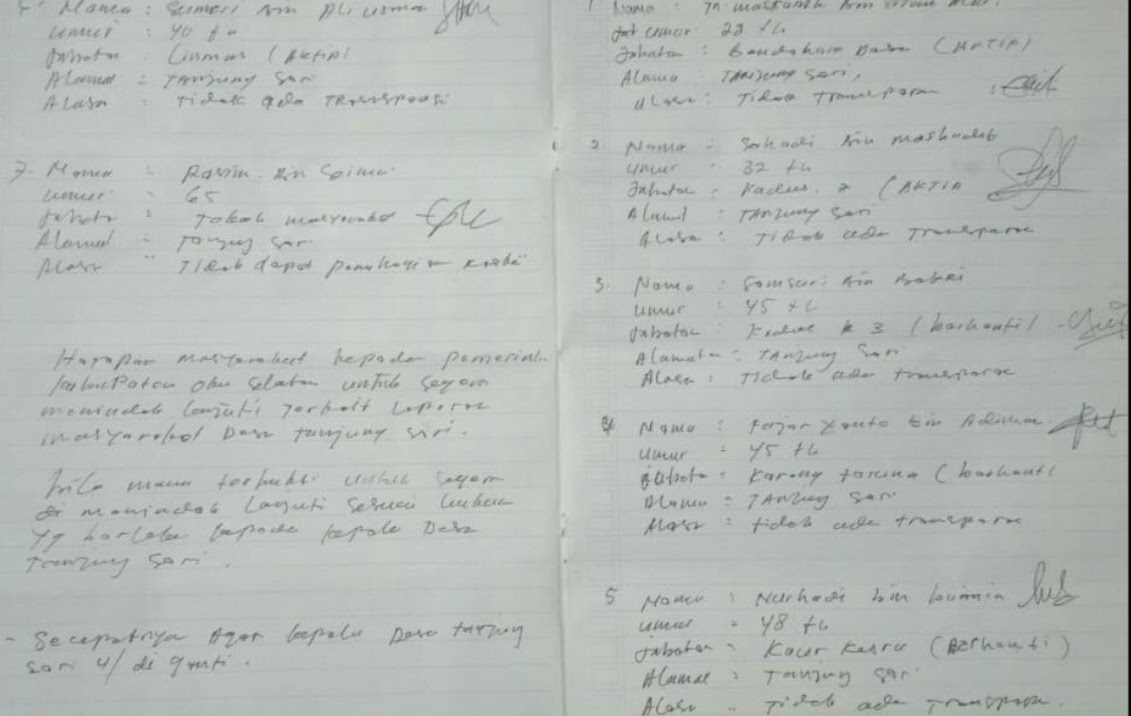 Nama : Sumeri bin Ali usman
umur : 40 th
Jabatan : Linmas (Aktip)
Alamat : TANJUNG Sari
Alasa : Tidak ada Transparasi
7. Nama : Rasim bin Saima
umur : 65
Jabata : Tokoh masyarakat
Alamat : Tanjung Sari
Alasa : Tidak dapat
Harapan masyarakat kepada pemerinta
kabupaten oku selatan untuk segera
menindak lanjuti terkait Laporan
masyarakat Desa tanjung sari.
bila mana terbukti untuk segera
di menindak Lanjuti sesuai hukum
yg berlaku kepada kepala Desa
Tanjung Sari.
- Secepatnya Agar kepala Desa tanjung
sari U/ di ganti.
1 Nama :
umur : 22 th
Jabatan : Bendahara Desa (AKTIP)
Alama : TANJUNG Sari,
Alasa : Tidak Transparan
2 Nama : Sahadi bin
umur : 32 th
Jabata : Kadus. 2 (AKTIP
Alamat : TANJUNG Sari
Alasa : Tidak ada Transparan
3. Nama : Samsuri bin
umur : 45 th
Jabatan : Kadus k 3 (berhenti)
Alamata : TANJUNG Sari
Alasa : Tidak ada transparan
4 Nama : Fajar yanto bin
umur : 45 th
Jabata : Karang taruna (berhenti
Alama : TANJUNG Sari
Alasa : tidak ada transparan
5 Nama : Nurhadi bin
umur : 48 th
Jabatan : Kaur Kesra (Berhenti)
Alamat : Tanjung Sari
Alasa : Tidak ada Transpara